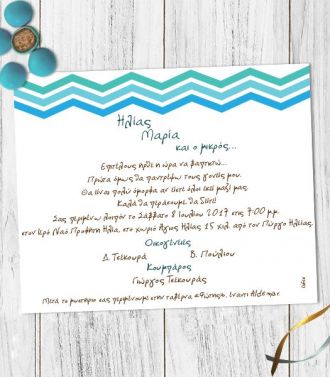 Ηλίας
Μαρία
και ο μικρός...
Επιτέλους ήρθε η ώρα να βαφτιστώ...
Πρώτα όμως θα παντρέψω τους γονείς μου.
Θα είναι πολύ όμορφα αν είστε όλοι εκεί μαζί μας.
Καλά θα περάσουμε θα δείτε!
Σας περιμένω λοιπόν το Σάββατο 8 Ιουλίου 2017 στις 7:00 μμ.
στον Ιερό Ναό Προφήτη Ηλία, στο χωριό Άγιος Ηλίας 15 χιλ. από τον Πύργο Ηλείας.
Οικογένειες
Δ. Τσικουρά Β. Πούλιου
Κουμπάρος
Γιώργος Τσικουράς
Μετά το μυστήριο σας περιμένουμε στην ταβέρνα «Φώτης», έναντι Aldemar.